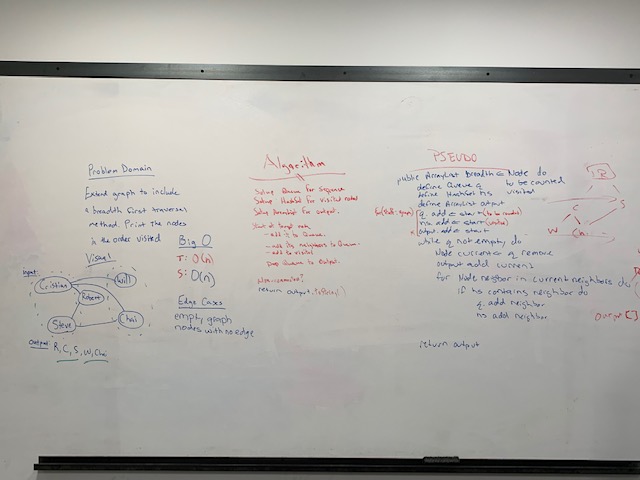 Problem Domain
Extend graph to include
a breadth first traversal
method. Print The nodes
in the order visited
Visual
Input:
Cristian
Will
Robert
Steve
Chai
Output:
R, C, S, W, Chai
Big O
T: O(n)
S: O(n)
Edge Cases
empty graph
nodes with no edge
Algorithm
Queue For Sequence
HashSet For visited nodes
For output.
Start at target node
- add it to Queue.
- add its neighbors to Queue.
- add to visited
Queue to Output.
return output.toArray()
PSEUDO
public ArrayList Breadth <= Node do
define Queue q to be counted
define HashSet ns visited
define ArrayList output
q. add <= start (to be counted)
ns. add <= start (visited)
output. add <= start
while q not empty do
Node current <= q remove
output add current
for Node neighbor in current neighbors do
if ns contains neighbor do
q. add neighbor
ns add neighbor
return output
R
C
S
W
Ch
Output []